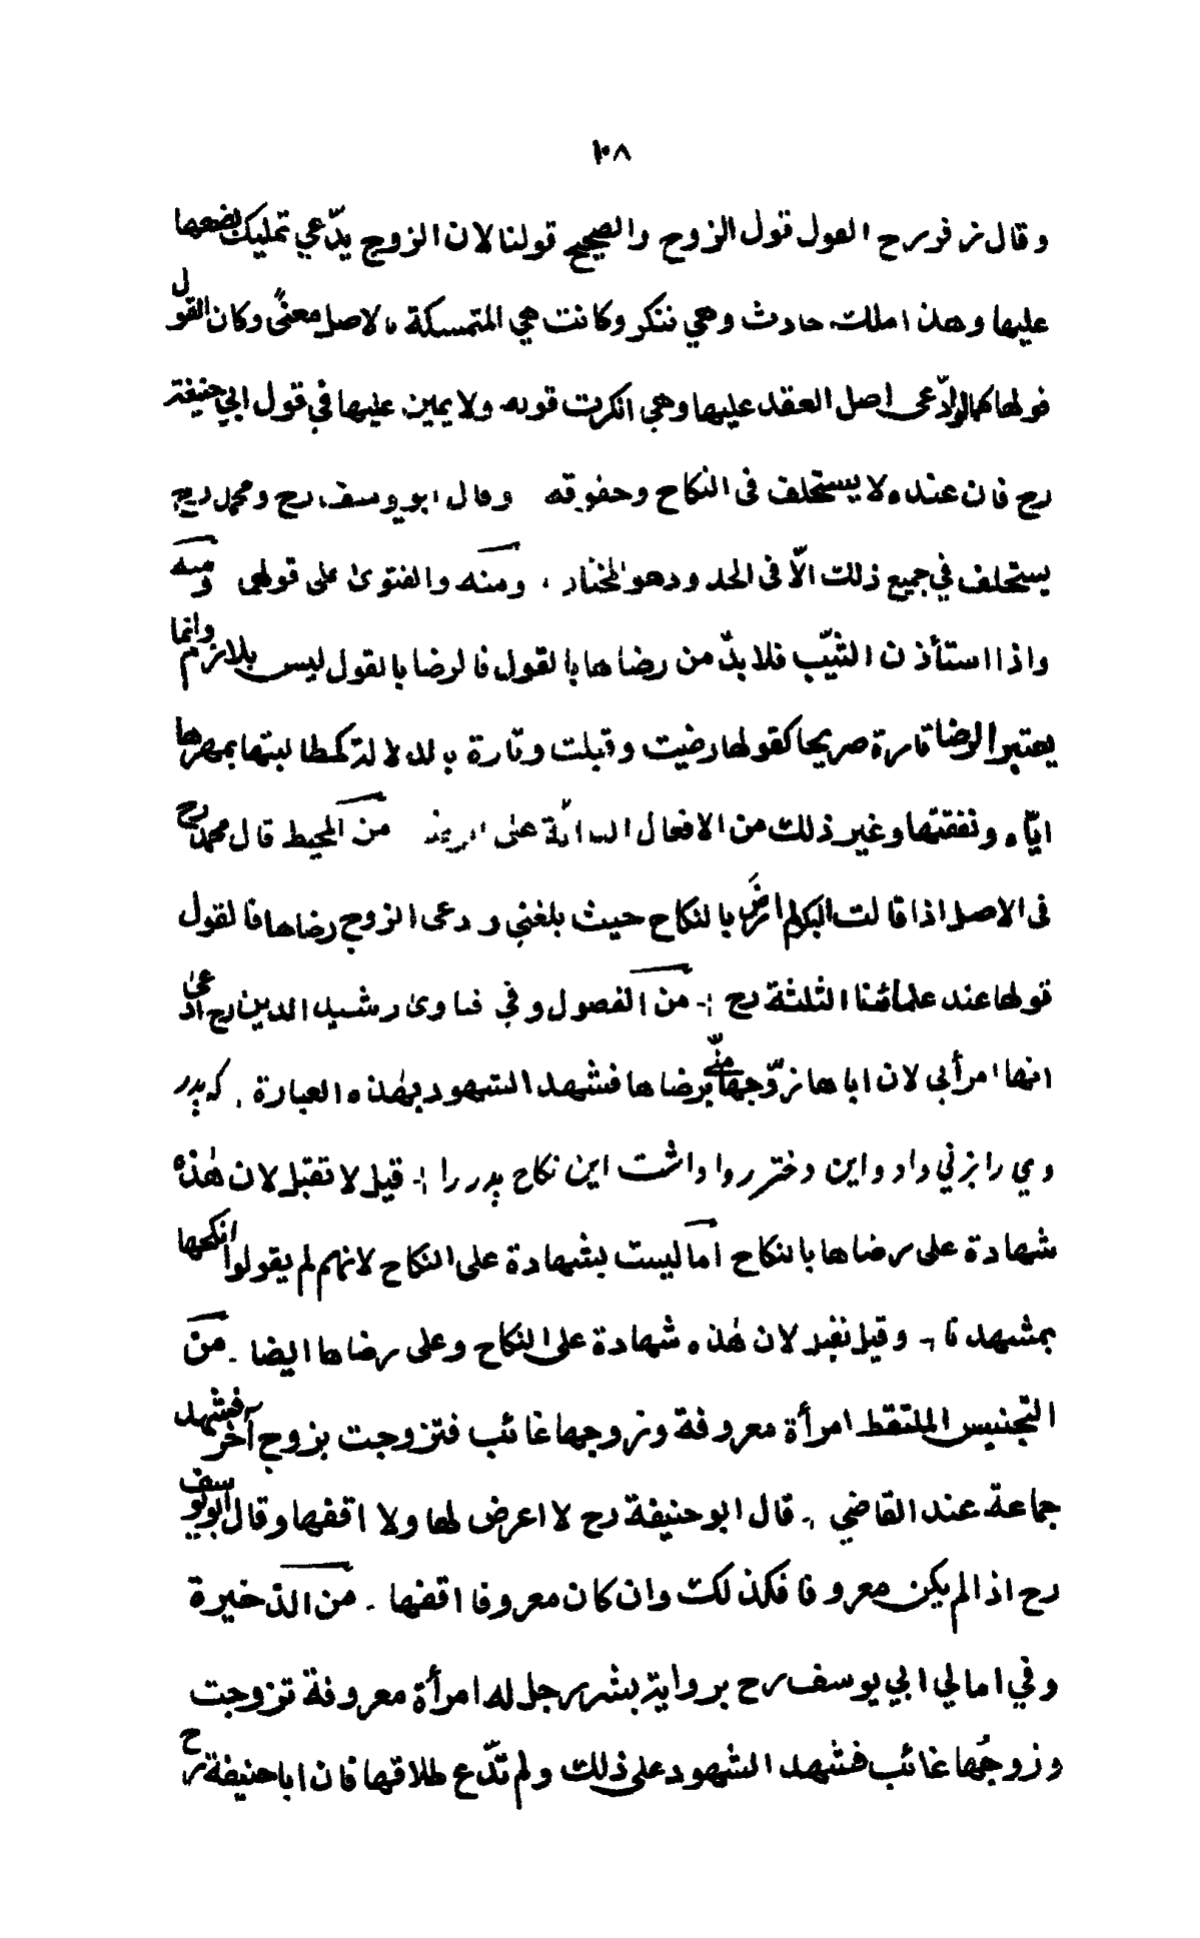 ١٠٨
وقال زفر رح القول قول الزوج والصحيح قولنا لان الزوج يدّعي تمليك بضعها
عليها وهذا ملك حادث وهي تنكر وكانت هي المتمسكة بالاصل معنًى وكان القول
قولها كما لو ادّعى اصل العقد عليها وهي انكرت قوله ولا يمين عليها في قول ابي حنيفة
رح فان عنده لا يستحلف فى النكاح وحقوقه وقال ابو يوسف رح ومحمد رح
يستحلف في جميع ذلك الّا فى الحدود هو المختار . ومنه والفتوى على قولهما ومنه
واذا استأذن الثيّب فلا بدّ من رضاها بالقول فالرضا بالقول ليس بلازم وانما
يعتبر الرضا تارة صريحا كقولها رضيت وقبلت وتارة بالدلالة كمطالبتها بمهرها
ايّاه ونفقتها وغير ذلك من الافعال الدالّة على من المحيط قال محمد رح
فى الاصل اذا قالت البكر لم ارضَ بالنكاح حيث بلغني وادعى الزوج رضاها فالقول
قولها عند علمائنا الثلثة رح ؛- من الفصول وفي فتاوى رشيد الدين رح ادّعى
انها امرأتي لان اباها زوّجها منّي برضاها فشهد الشهود بهذه العبارة . كه پدر
وي را بزني داد واين دختر روا داشت اين نكاح پدر را ؛- قيل لا تقبل لان هٰذه
شهادة على رضاها بالنكاح اما ليست بشهادة على النكاح لانهم لم يقولوا انكحها
بمشهدنا ؛- وقيل تقبل لان هٰذه شهادة على النكاح وعلى رضاها ايضا . من
التجنيس الملتقط امرأة معروفة وزوجها غائب فتزوجت بزوج آخر فشهد
جماعة عند القاضي ؛- قال ابو حنيفة رح لا اعرض لها ولا اقفها وقال ابو يوسف
رح اذا لم يكن معروفا فكذلك وان كان معروفا اقفها . من الذخيرة
وفي امالي ابي يوسف رح برواية بشر رجل له امرأة معروفة تزوجت
وزوجُها غائب فشهد الشهود على ذلك ولم تدّع طلاقها فان ابا حنيفة رح